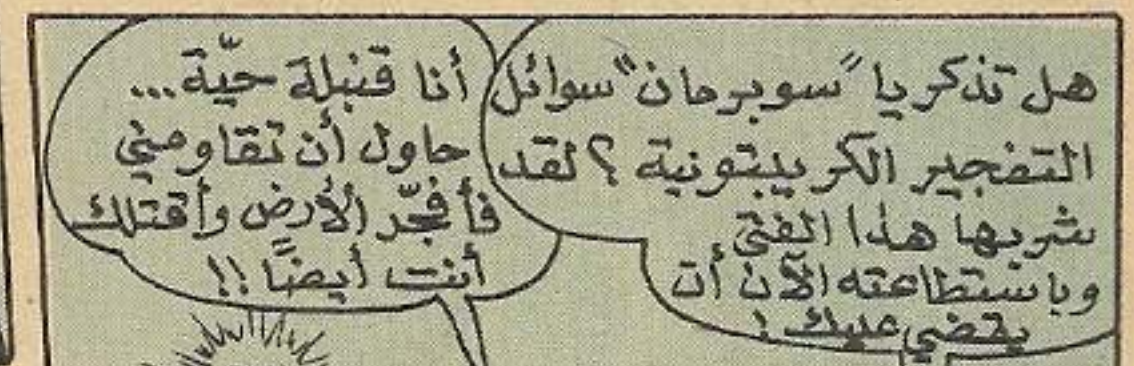 هل تذكر يا "سوبرمان" سوائل
التفجير الكريبتونية ؟ لقد
شربها هذا الفتى
وباستطاعته الآن أن
يقضي عليك !
أنا قنبلة حيّة...
حاول أن تقاومني
فأفجّر الأرض وأقتلك
أنت أيضًا !!